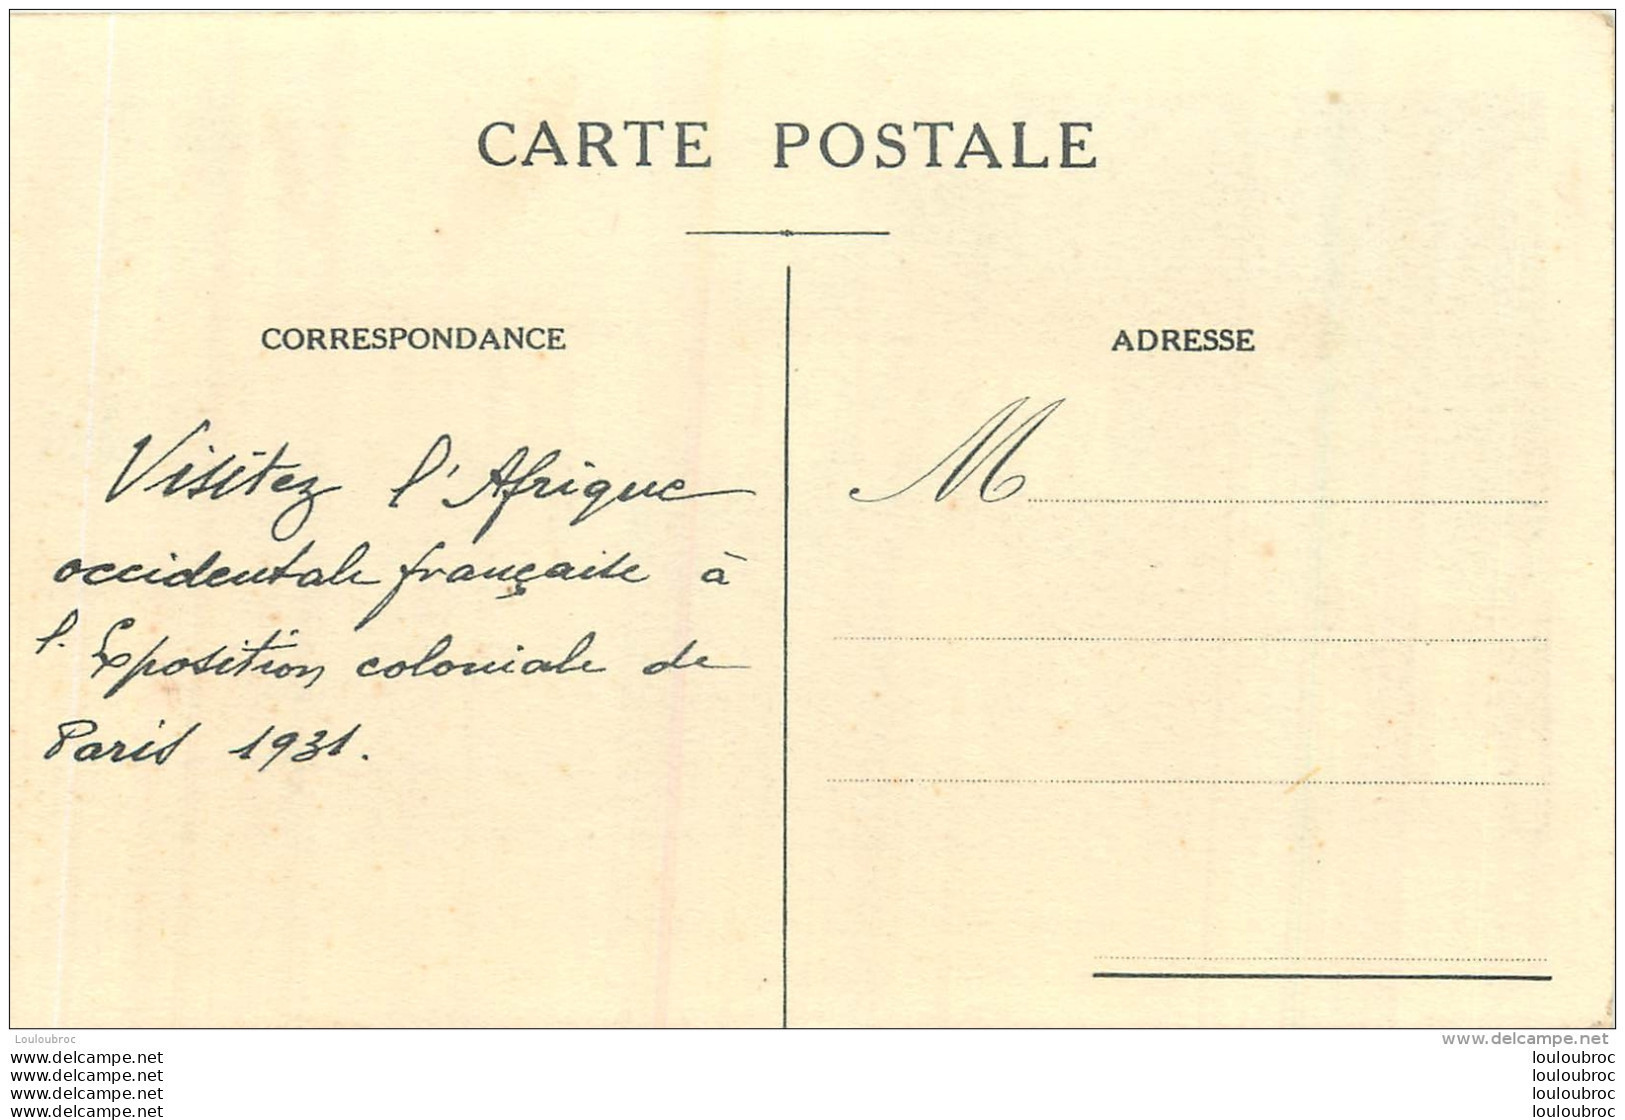 CARTE POSTALE
CORRESPONDANCE
Visitez l'Afrique
occidentale française à
l'Exposition coloniale de
Paris 1931.
ADRESSE
M
Louloubroc
www.delcampe.net
www.delcampe.net
www.delcampe.net
www.delcampe.net
www.delcampe.net
louloubroc
louloubroc
louloubroc
louloubroc